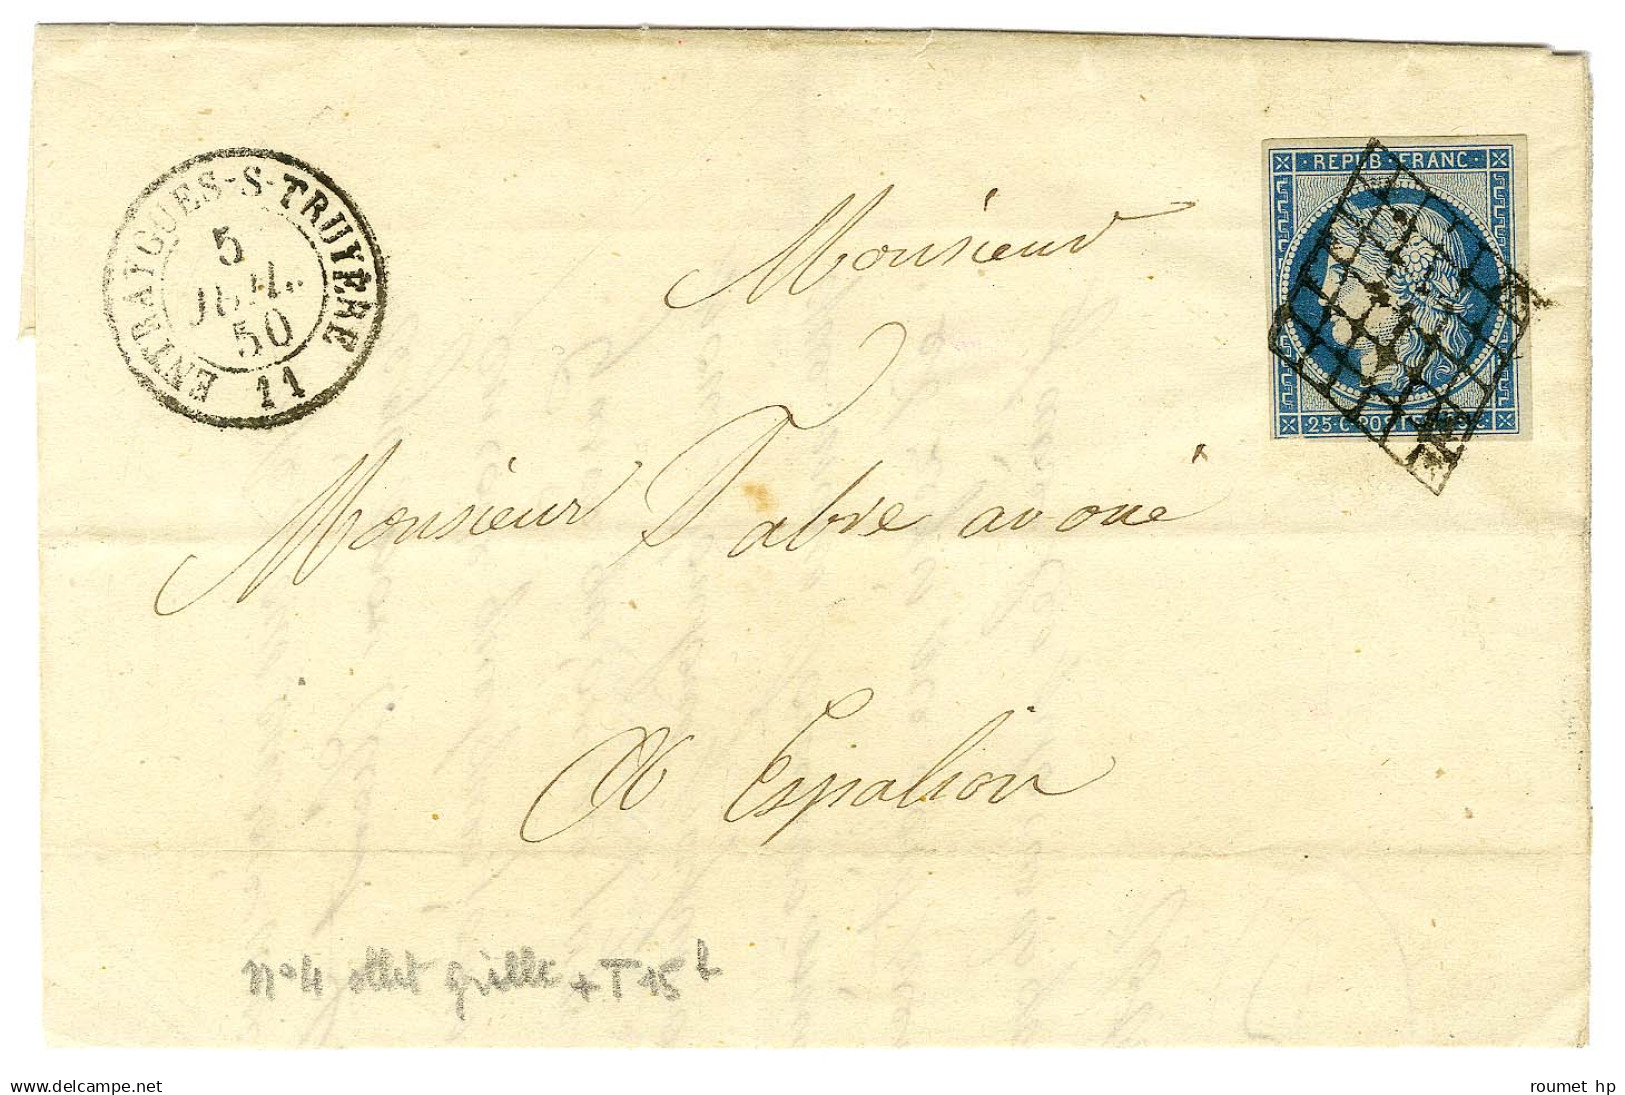 ENTRAYGUES-S-TRUYÈRE
5
JUIL.
50
11
REPUB FRANC
25 · C · POSTES
Monsieur
Monsieur Fabre avoué
à Espalion
n°4 grille + T 15
www.delcampe.net
roumet hp